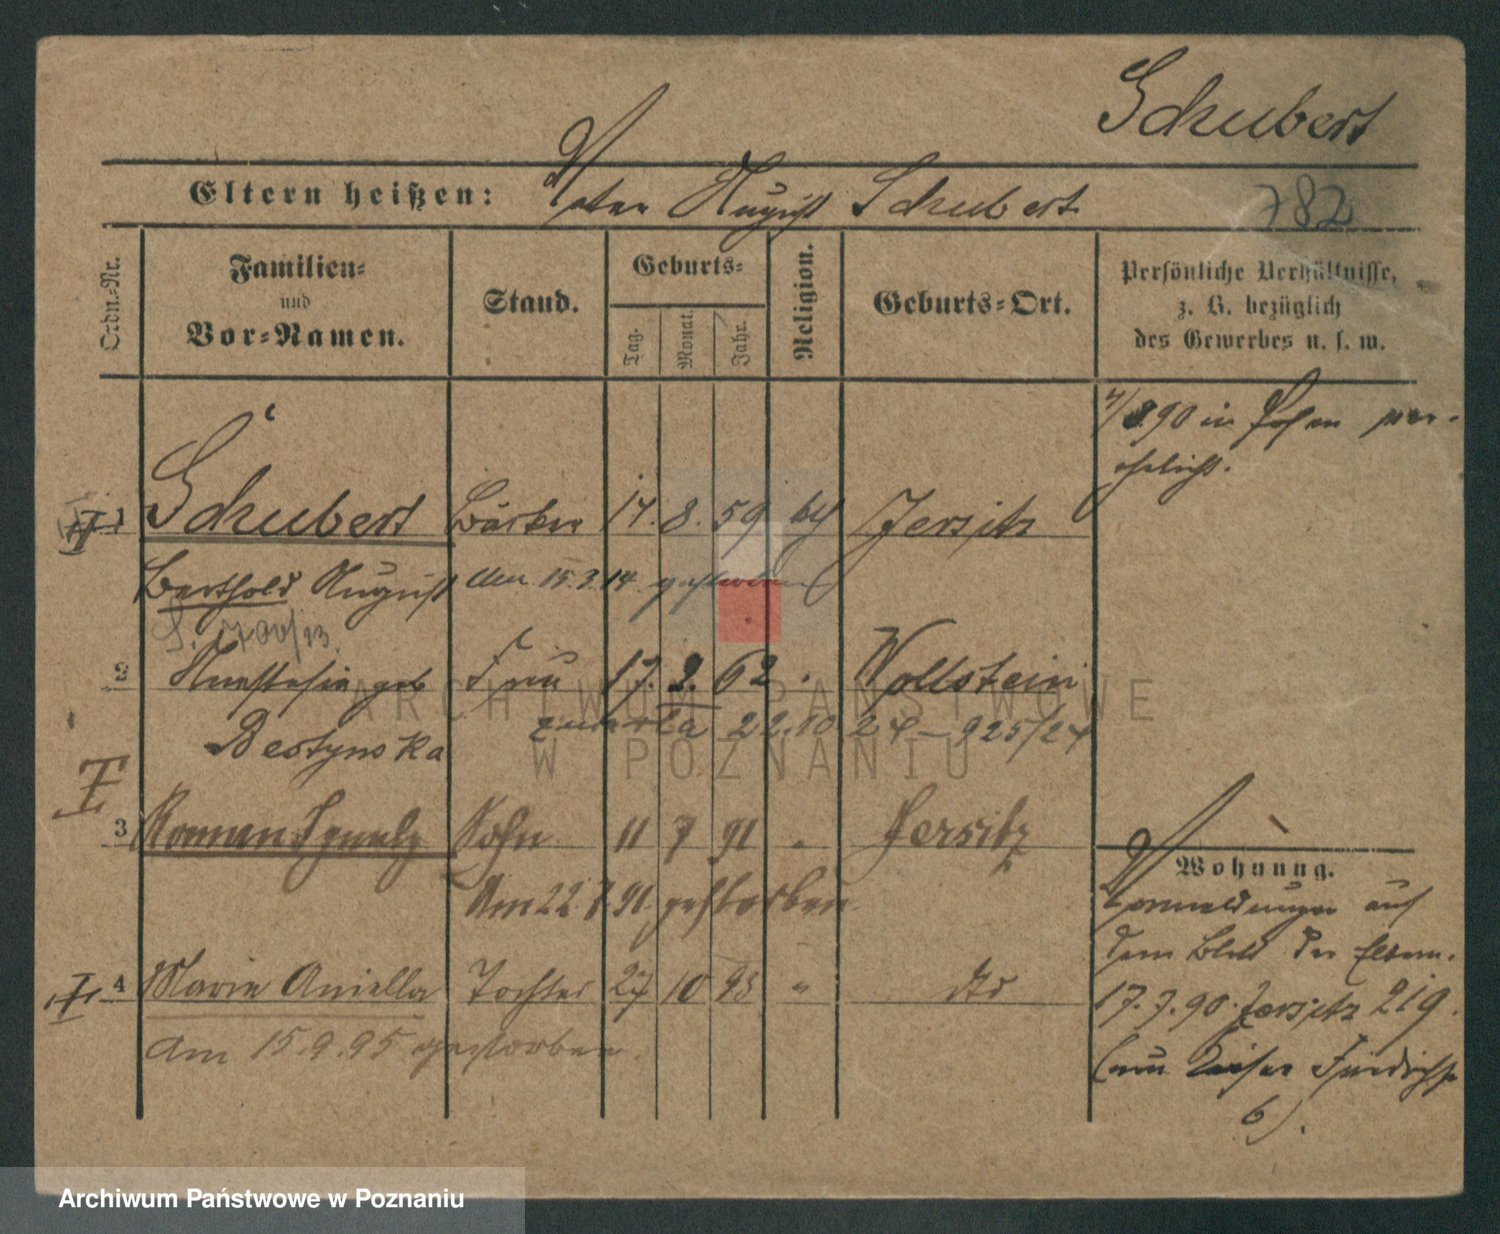 Schubert
Eltern heißen: Vater August Schubert
782
Ordn.-Nr.
Familien-
und
Vor-Namen.
Stand.
Geburts-
Tag.
Monat.
Jahr.
Religion.
Geburts-Ort.
Persönliche Verhältnisse,
z. B. bezüglich
des Gewerbes u. s. w.
4/8.90 in Posen ver-
ehelicht.
1 Schubert Bäcker 14. 8. 59 Jersitz
Berthold August den 15.3.14 gestorben
700/13
2 Anastasia geb Frau 17. 2. 62 Wollstein
Bestynska 22.10 24 – 925/24
3 Roman Ignatz Sohn 11 7 91 " Jersitz
Am 22.7.91 gestorben
4 Marie Aniella Tochter 27 10 93 " dto
am 15.9.95 gestorben.
Wohnung.
Vormeldungen auf
dem Blatt der Eltern.
17.7.90. Jersitz 219.
(nun Kaiser Friedrichstr
6).
ARCHIWUM PAŃSTWOWE
W POZNANIU
Archiwum Państwowe w Poznaniu